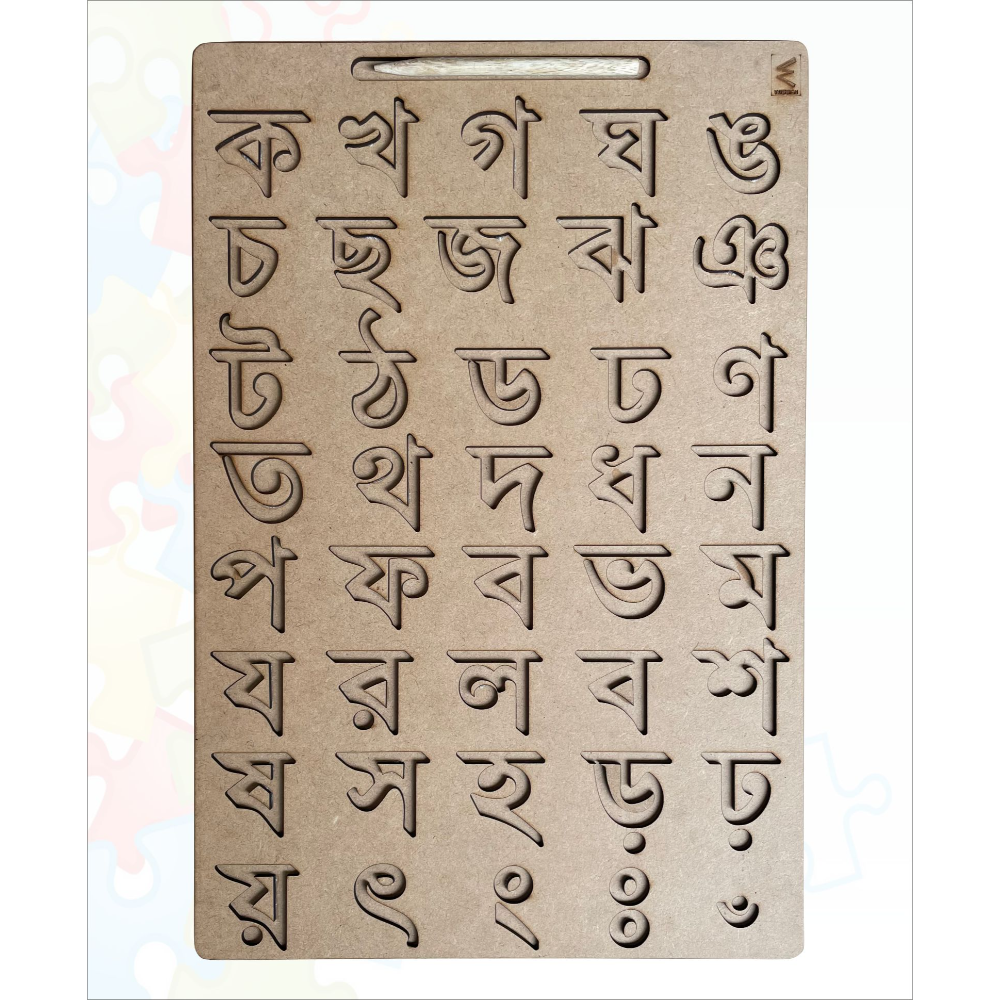 ক খ গ ঘ ঙ
চ ছ জ ঝ ঞ
ট ঠ ড ঢ ণ
ত থ দ ধ ন
প ফ ব ভ ম
য র ল ব শ
ষ স হ ড় ঢ়
য় ৎ ং ঃ ঁ